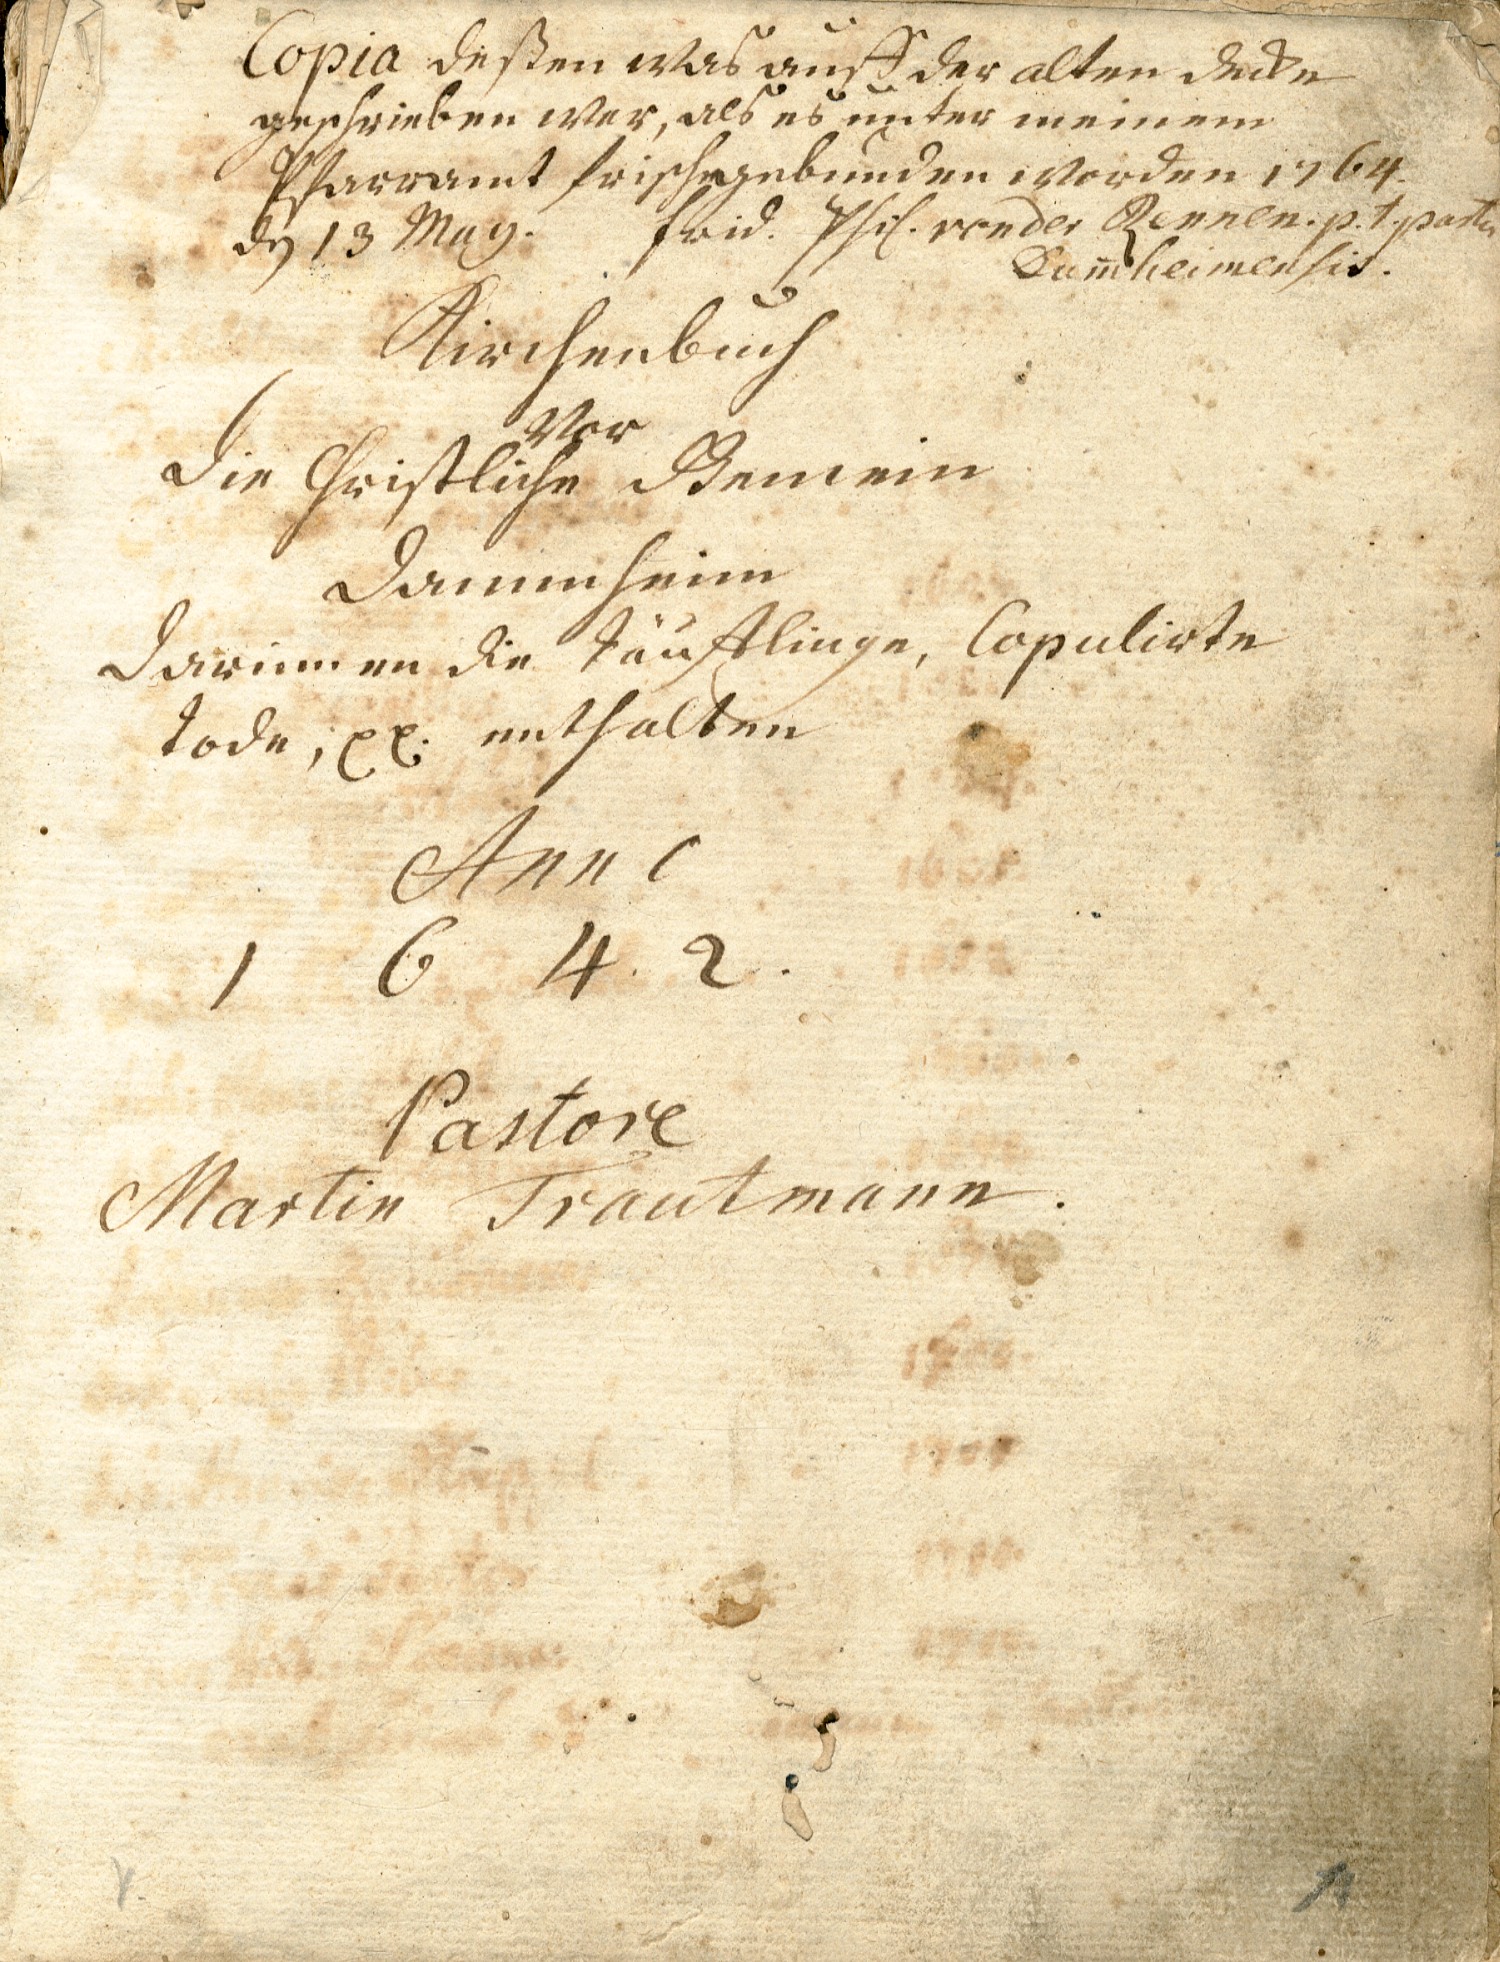 Copia deßen was auff der alten Decke
geschrieben war, als es unter meinem
Pfarramt frisch gebunden worden 1764.
dę 13 May. Frid. Phil. von der Rennen. p. t. pastor
Dam̅heimensis.
Kirchenbuch
Vor
die Christliche Gemein
Dammheim
Darinnen die Täufflinge, Copulirte
Tode, xx. enthalten
Anno
1 6 4. 2.
Pastore
Martin Trautmann.